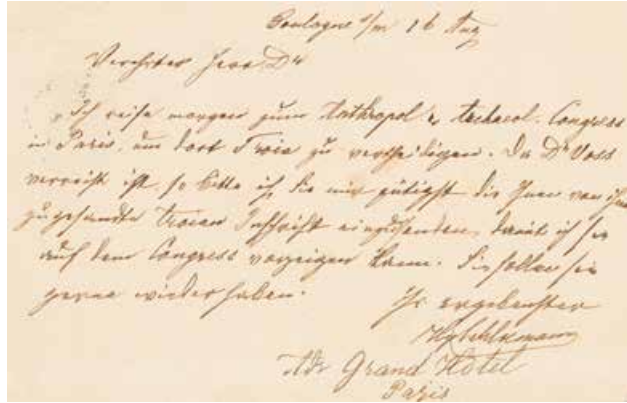 Boulogne s/m 16 Aug
Verehrter Herr Dr
Ich reise morgen zum Anthropol & Archaeol. Congress
in Paris, um dort Troia zu vertheidigen. Da Dr Voss
verreist ist, so bitte ich Sie mir gütigst die Ihnen von ihm
zugesandte troian Inschrift einzusenden, damit ich sie
auf dem Congress vorzeigen kann. Sie sollen sie
gerne wieder haben.
Ihr ergebenster
HySchliemann
Adr Grand Hôtel
Paris